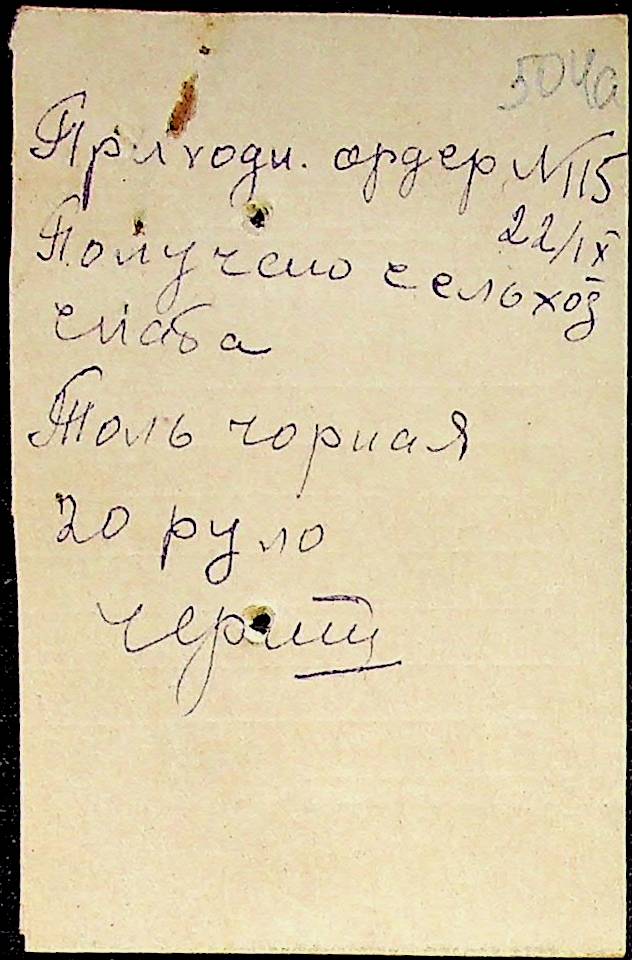 504а
Приходн. ордер №115
22/IX
Получено сельхоз
снаба
Толь чорная
20 руло